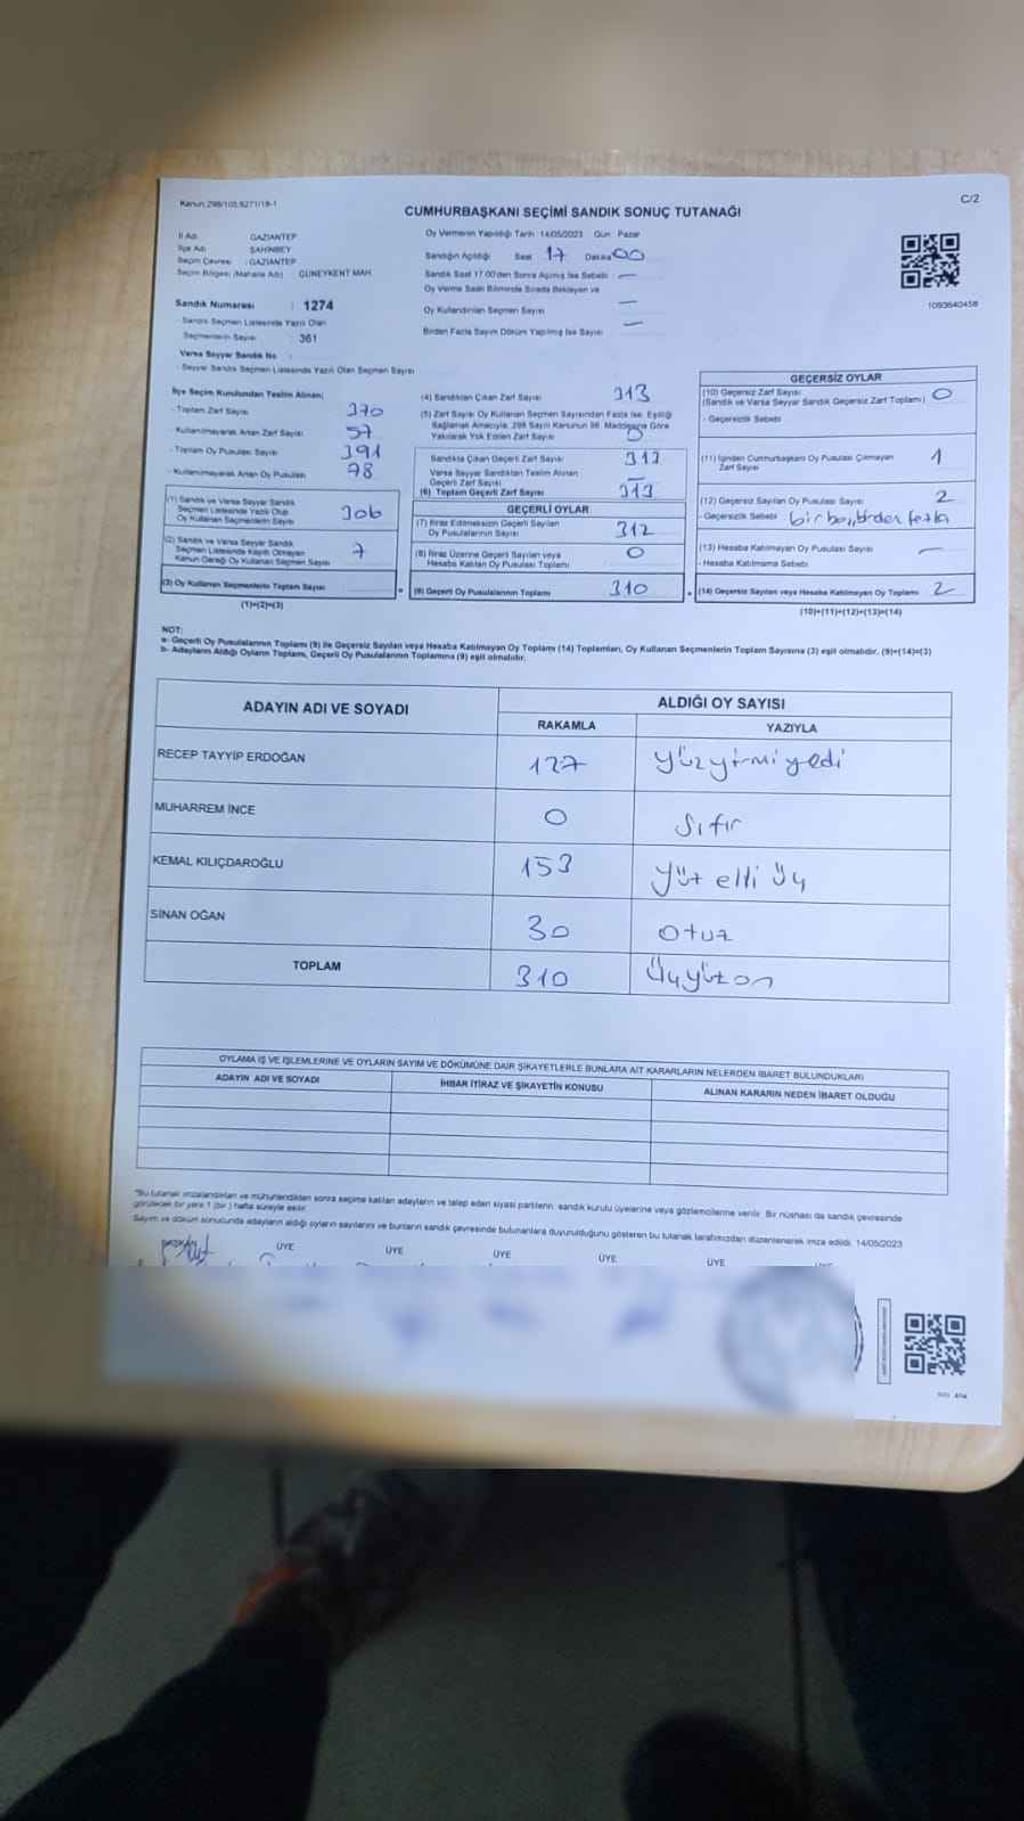 Kanun:298/105,6271/19-1
C/2
CUMHURBAŞKANI SEÇİMİ SANDIK SONUÇ TUTANAĞI
İl Adı GAZİANTEP
İlçe Adı ŞAHİNBEY
Seçim Çevresi : GAZİANTEP
Seçim Bölgesi (Mahalle Adı) GÜNEYKENT MAH.
Sandık Numarası : 1274
Sandık Seçmen Listesinde Yazılı Olan
Seçmenlerin Sayısı 361
Varsa Seyyar Sandık No :
- Seyyar Sandık Seçmen Listesinde Yazılı Olan Seçmen Sayısı
Oy Vermenin Yapıldığı Tarih 14/05/2023 Gün : Pazar
Sandığın Açıldığı Saat 17 Dakika 00
Sandık Saat 17.00'den Sonra Açılmış İse Sebebi —
Oy Verme Saati Bitiminde Sırada Bekleyen ve
Oy Kullandırılan Seçmen Sayısı —
Birden Fazla Sayım Döküm Yapılmış İse Sayısı —
1093640458
İlçe Seçim Kurulundan Teslim Alınan;
- Toplam Zarf Sayısı 370
- Kullanılmayarak Artan Zarf Sayısı 57
- Toplam Oy Pusulası Sayısı 391
- Kullanılmayarak Artan Oy Pusulası 78
(1) Sandık ve Varsa Seyyar Sandık
Seçmen Listesinde Yazılı Olup
Oy Kullanan Seçmenlerin Sayısı 306
(2) Sandık ve Varsa Seyyar Sandık
Seçmen Listesinde Kayıtlı Olmayan
Kanun Gereği Oy Kullanan Seçmen Sayısı 7
(3) Oy Kullanan Seçmenlerin Toplam Sayısı
(1)+(2)=(3)
(4) Sandıktan Çıkan Zarf Sayısı 313
(5) Zarf Sayısı Oy Kullanan Seçmen Sayısından Fazla İse, Eşitliği
Sağlamak Amacıyla, 298 Sayılı Kanunun 98. Maddesine Göre
Yakılarak Yok Edilen Zarf Sayısı
Sandıkta Çıkan Geçerli Zarf Sayısı 313
Varsa Seyyar Sandıktan Teslim Alınan
Geçerli Zarf Sayısı —
(6) Toplam Geçerli Zarf Sayısı 313
GEÇERLİ OYLAR
(7) İtiraz Edilmeksizin Geçerli Sayılan
Oy Pusulalarının Sayısı 312
(8) İtiraz Üzerine Geçerli Sayılan veya
Hesaba Katılan Oy Pusulası Toplamı 0
(9) Geçerli Oy Pusulalarının Toplamı 310
GEÇERSİZ OYLAR
(10) Geçersiz Zarf Sayısı 0
(Sandık ve Varsa Seyyar Sandık Geçersiz Zarf Toplamı)
- Geçersizlik Sebebi
(11) İçinden Cumhurbaşkanı Oy Pusulası Çıkmayan
Zarf Sayısı 1
(12) Geçersiz Sayılan Oy Pusulası Sayısı 2
- Geçersizlik Sebebi
(13) Hesaba Katılmayan Oy Pusulası Sayısı —
- Hesaba Katılmama Sebebi
(14) Geçersiz Sayılan veya Hesaba Katılmayan Oy Toplamı 2
(10)+(11)+(12)+(13)=(14)
NOT:
a- Geçerli Oy Pusulalarının Toplamı (9) ile Geçersiz Sayılan veya Hesaba Katılmayan Oy Toplamı (14) Toplamları, Oy Kullanan Seçmenlerin Toplam Sayısına (3) eşit olmalıdır. (9)+(14)=(3)
b- Adayların Aldığı Oyların Toplamı, Geçerli Oy Pusulalarının Toplamına (9) eşit olmalıdır.
ADAYIN ADI VE SOYADI ALDIĞI OY SAYISI
RAKAMLA YAZIYLA
RECEP TAYYİP ERDOĞAN 127 yüzyirmiyedi
MUHARREM İNCE 0 Sıfır
KEMAL KILIÇDAROĞLU 153 yüz elli üç
SİNAN OĞAN 30 otuz
TOPLAM 310 Üçyüzon
OYLAMA İŞ VE İŞLEMLERİNE VE OYLARIN SAYIM VE DÖKÜMÜNE DAİR ŞİKAYETLERLE BUNLARA AİT KARARLARIN NELERDEN İBARET BULUNDUKLARI
ADAYIN ADI VE SOYADI İHBAR İTİRAZ VE ŞİKAYETİN KONUSU ALINAN KARARIN NEDEN İBARET OLDUĞU
"Bu tutanak imzalandıktan ve mühürlendikten sonra seçime katılan adayların ve talep eden siyasi partilerin, sandık kurulu üyelerine veya gözlemcilerine verilir. Bir nüshası da sandık çevresinde
görülecek bir yere 1 (bir ) hafta süreyle asılır.
Sayım ve döküm sonucunda adayların aldığı oyların sayılarını ve bunların sandık çevresinde bulunanlara duyurulduğunu gösteren bu tutanak tarafımızdan düzenlenerek imza edildi. 14/05/2023
ÜYE ÜYE ÜYE ÜYE ÜYE